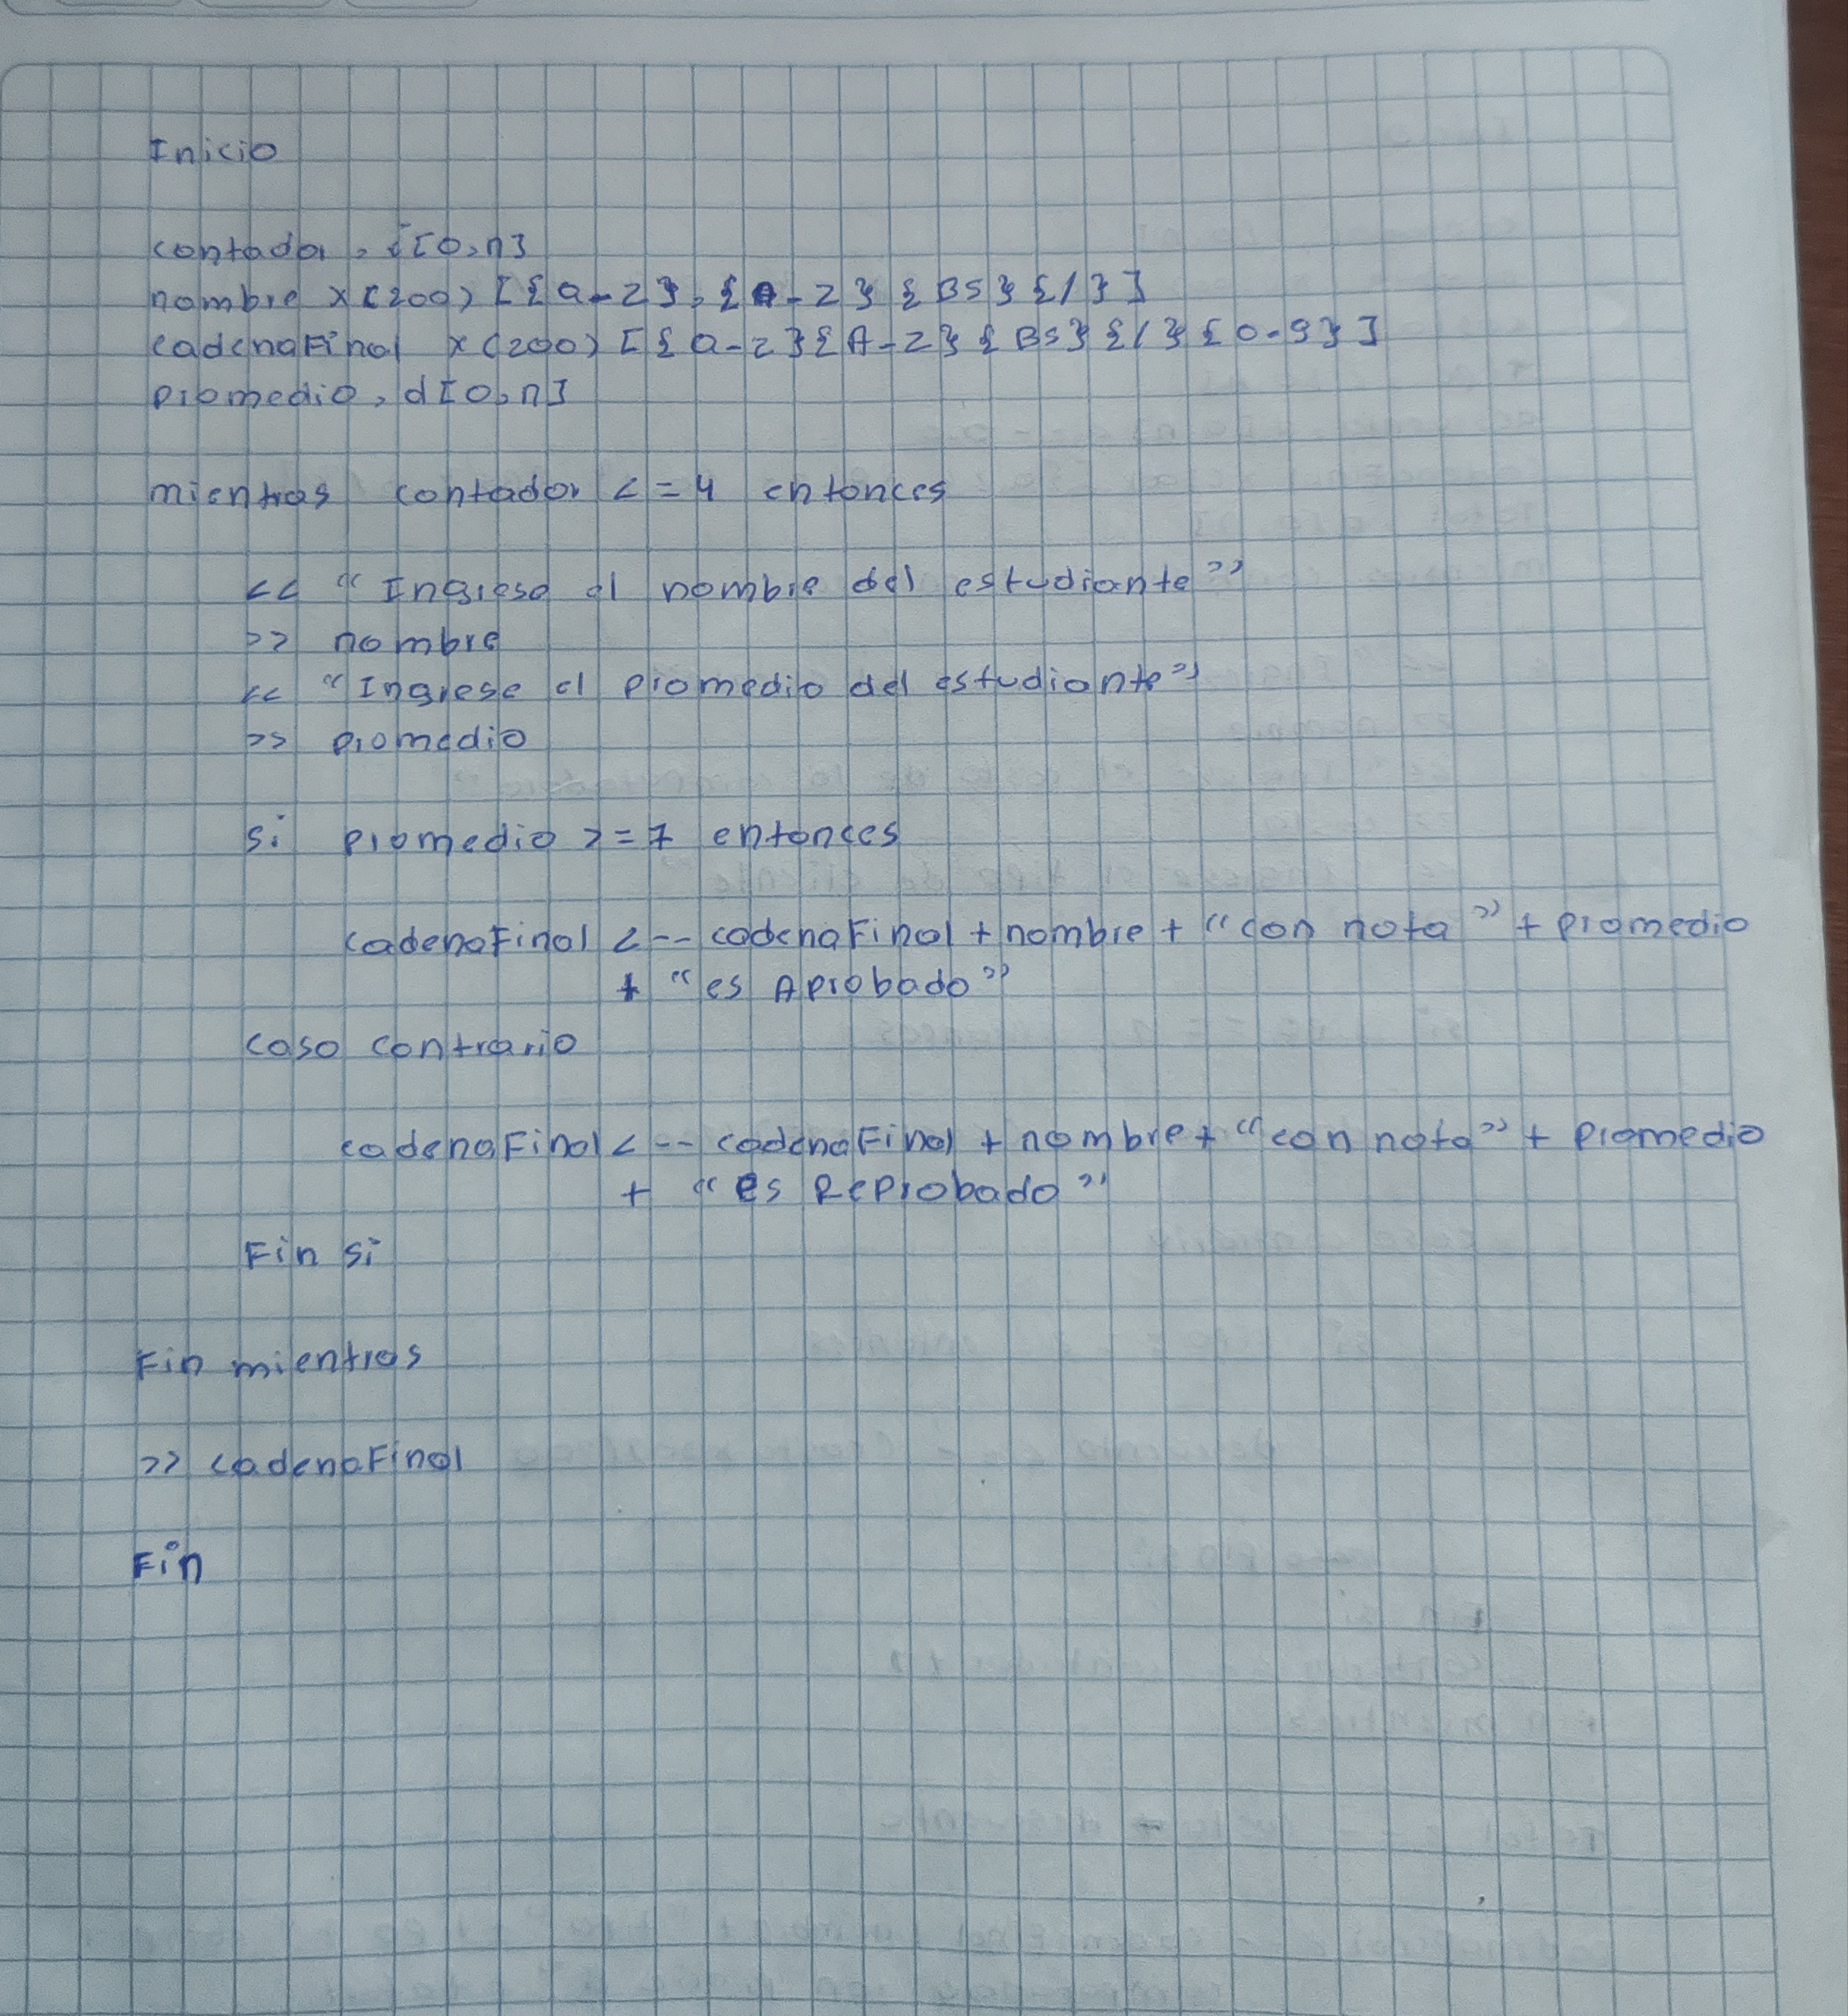 Inicio
contador, i[0,n]
nombre x(200) [{a-z},{A-z}{Bs}{/}]
cadenaFinal x(200) [{a-z}{A-Z}{Bs}{/}{0-9}]
promedio, d[0,n]
mientras contador <=4 entonces
<< "Ingrese el nombre del estudiante"
>> nombre
<< "Ingrese el promedio del estudiante"
>> promedio
si promedio >=7 entonces
cadenaFinal <-- cadenaFinal + nombre + "con nota" + promedio
+ "es Aprobado"
caso contrario
cadenaFinal <-- cadenaFinal + nombre + "con nota" + promedio
+ "es Reprobado"
Fin si
Fin mientras
>> cadenaFinal
Fin